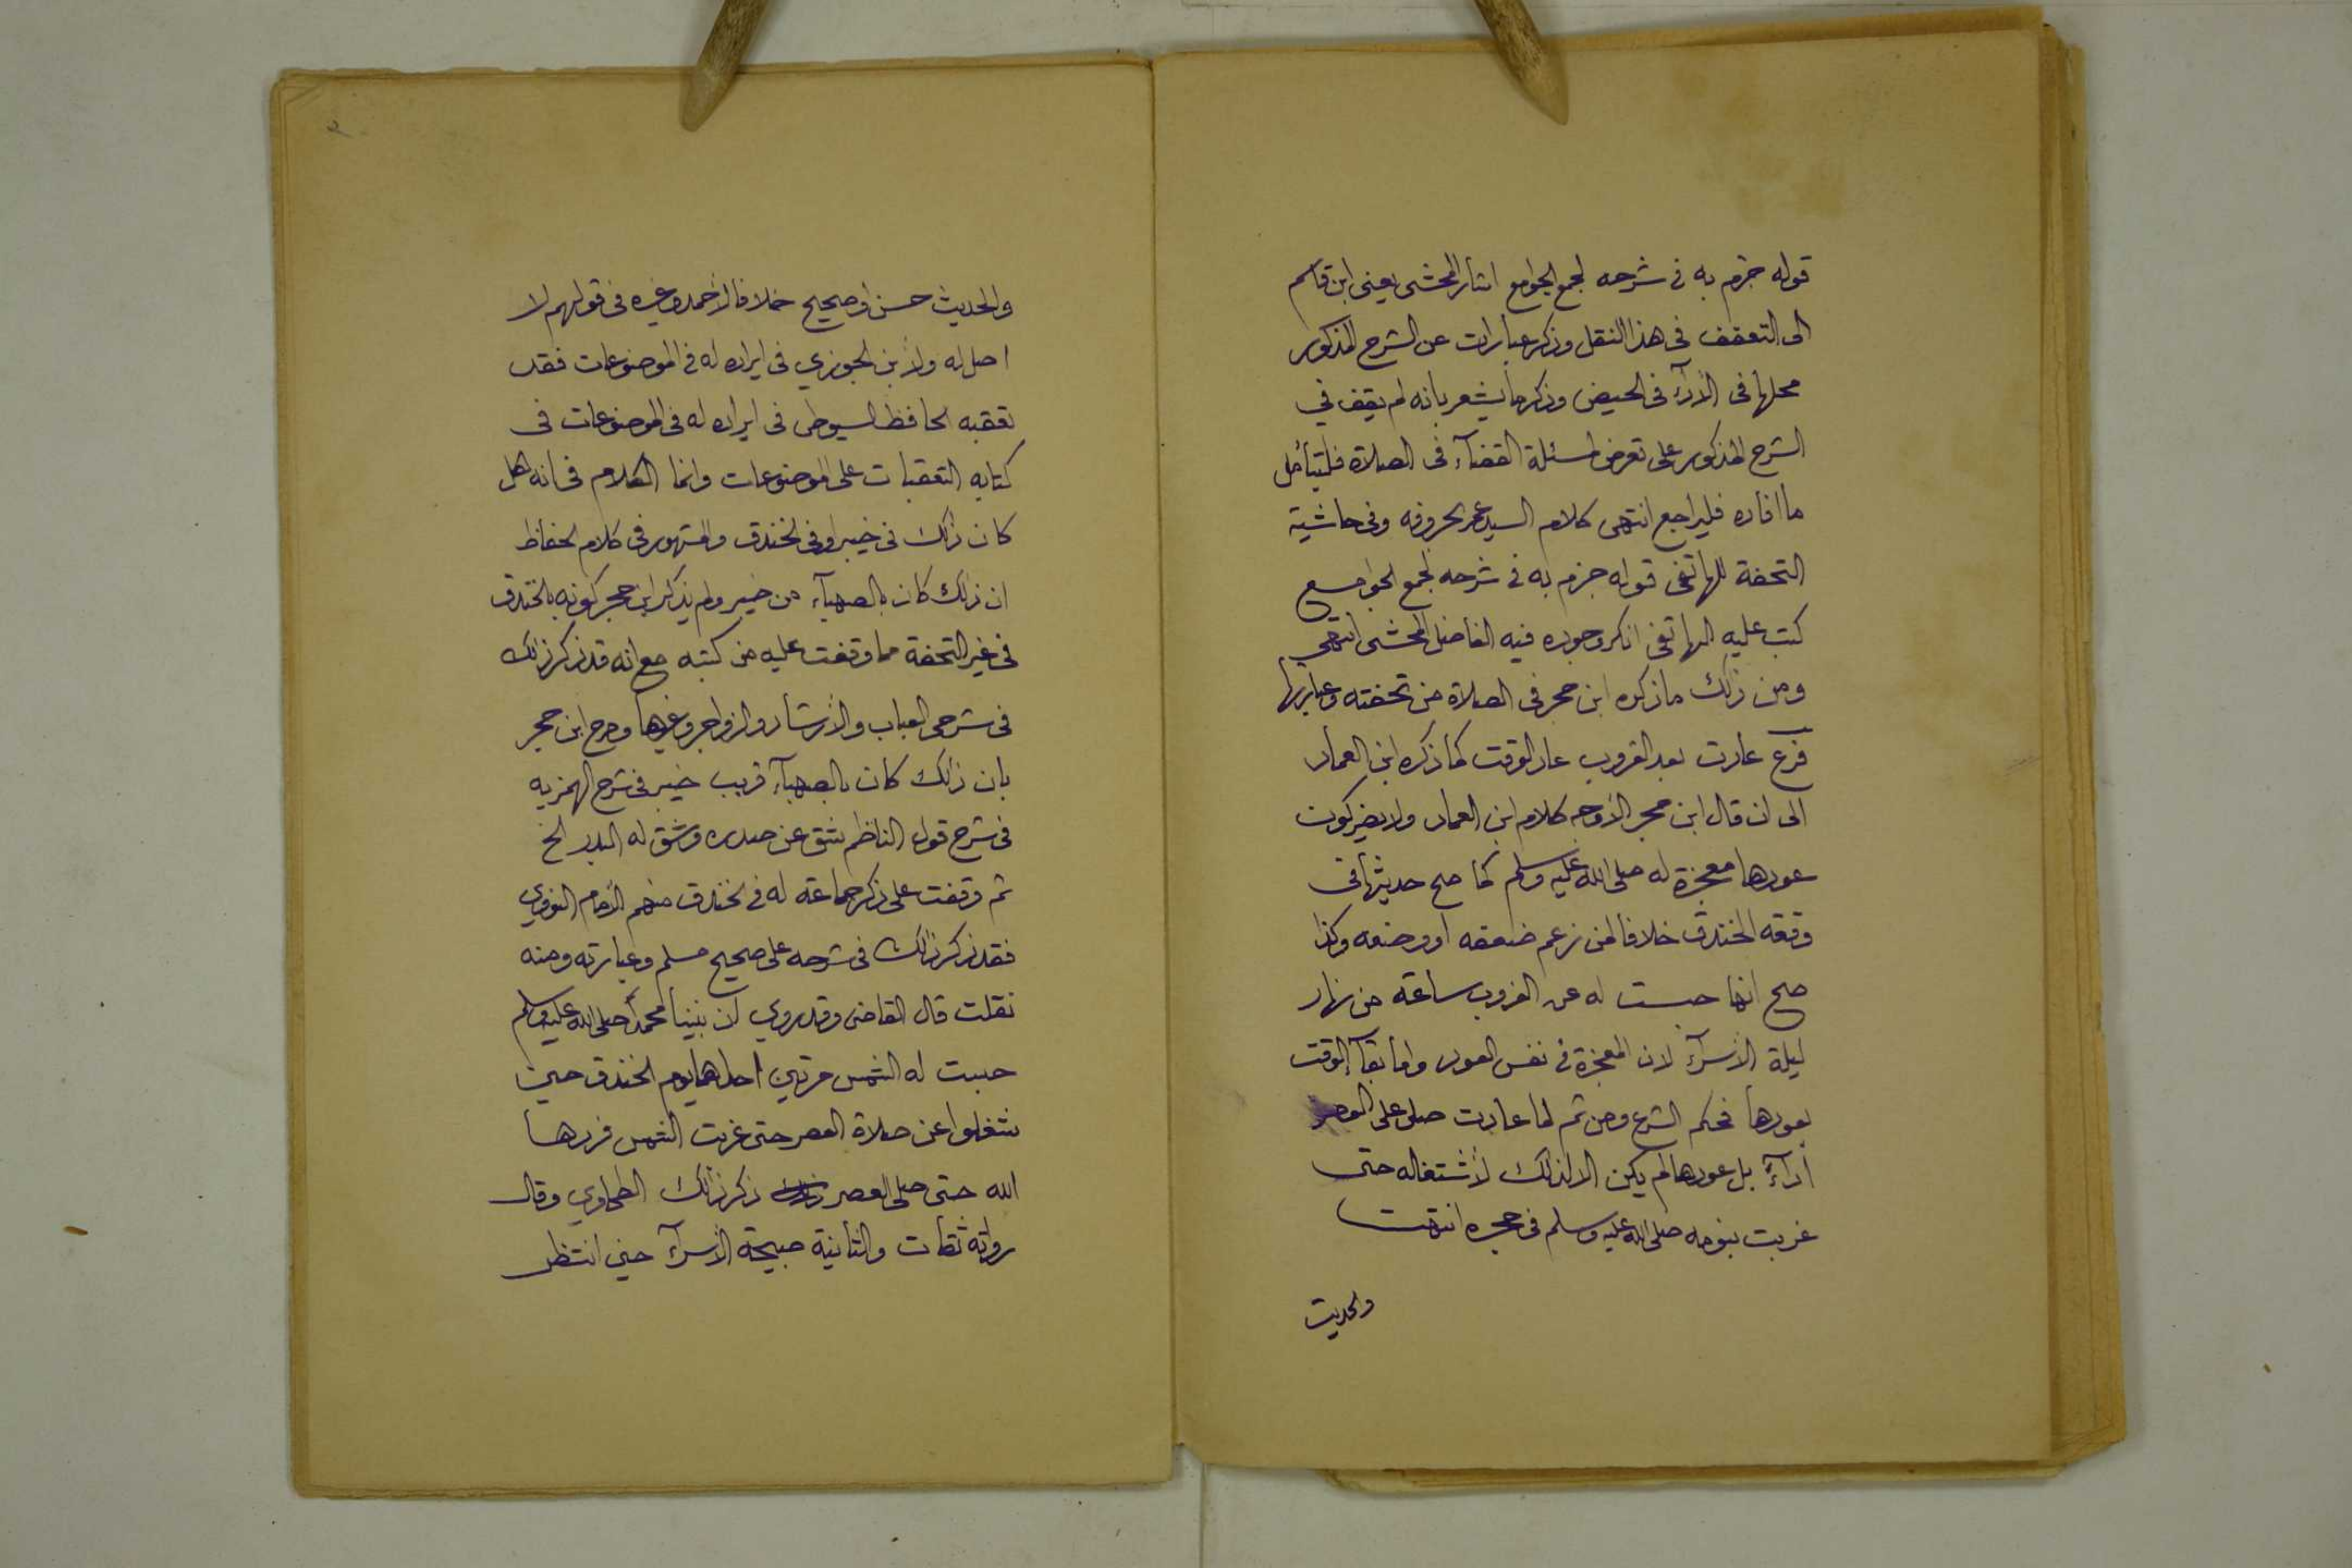 قوله جزم به في شرحه لجمع الجوامع اشار المحشى يعني ابن قاسم
الى التعقف في هذا النقل وذكر عبارات عن الشرح المذكور
محلها في الأدآء في الحيض وذكر ما يشعر بانه لم يقف في
الشرح المذكور على تعرض لمسئلة القضآء في الصلاة فليتأمل
ما افاده فليراجع انتهى كلام السيد عمر بحروفه وفي حاشية
التحفة للهاتفي قوله جزم به في شرحه لجمع الجوامع
كتب عليه الهاتفي انكر وجوده فيه الفاضل المحشى انتهى
ومن ذلك ما ذكره ابن حجر في الصلاة من تحفته وعبارتها
فرع عادت بعد الغروب عاد الوقت كما ذكره ابن العماد
الى ان قال ابن حجر الأوجه كلام ابن العماد ولا يضر كون
عودها معجزة له صلى الله عليه وسلم كما صح حديثها في
وقعة الخندق خلافا لمن زعم ضعفه او وضعه وكذا
صح انها حبست له عن الغروب ساعة من نهار
ليلة الأسرآء لان المعجزة في نفس العود واما بقآء الوقت
بعودها فحكم الشرع ومن ثم لما عادت صلى على العصر
أدآءً بل عودها لم يكن الا لذلك لأشتغاله حتى
غربت بنومه صلى الله عليه وسلم في حجره انتهت
والحديث
والحديث حسن او صحيح خلافا لأحمد وغيره في قولهم لا
اصل له ولأبن الجوزي في ايراده له في الموضوعات فقد
تعقبه الحافظ السيوطي في ايراده له في الموضوعات في
كتابه التعقبات على الموضوعات وانما الكلام في انه هل
كان ذلك في خيبر او في الخندق والمشهور في كلام الحفاظ
ان ذلك كان بالصهبآء من خيبر ولم يذكر ابن حجر كونه بالخندق
في غير التحفة مما وقفت عليه من كتبه مع انه قد ذكر ذلك
في شرحي العباب والأرشاد والزواجر وغيرها وصرح ابن حجر
بان ذلك كان بالصهبآء قريب خيبر في شرح الهمزيه
في شرح قول الناظم شق عن صدره وشق له البدر الخ
ثم وقفت على ذكر جماعة له في الخندق منهم الأمام النووي
فقد ذكر ذلك في شرحه على صحيح مسلم وعبارته ومنه
نقلت قال القاضى وقد روي ان نبينا محمداً صلى الله عليه وسلم
حبست له الشمس مرتين احداهما يوم الخندق حين
شغلوا عن صلاة العصر حتى غربت الشمس فردها
الله حتى صلى العصر ذكر ذلك الطحاوي وقال
رواته ثقات والثانية صبيحة الأسرآء حين انتظر